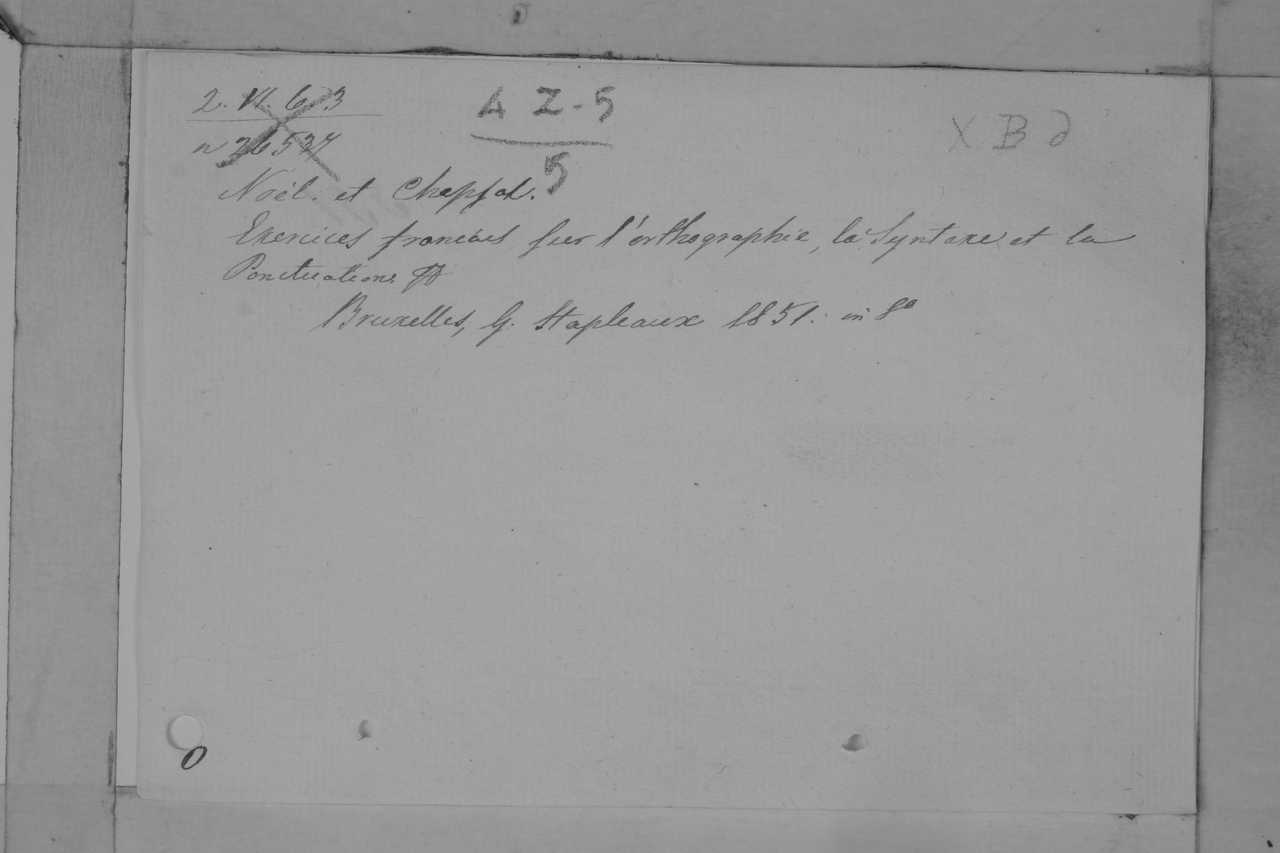 2. VI. 6.3
4 Z - 5
5
X B d
n 26527
Noël. et Chapsal.
Exercices francais sur l'orthographie, la Syntaxe, et la
Ponctuations
Bruxelles, G. Stapleaux 1851. in 8°
0